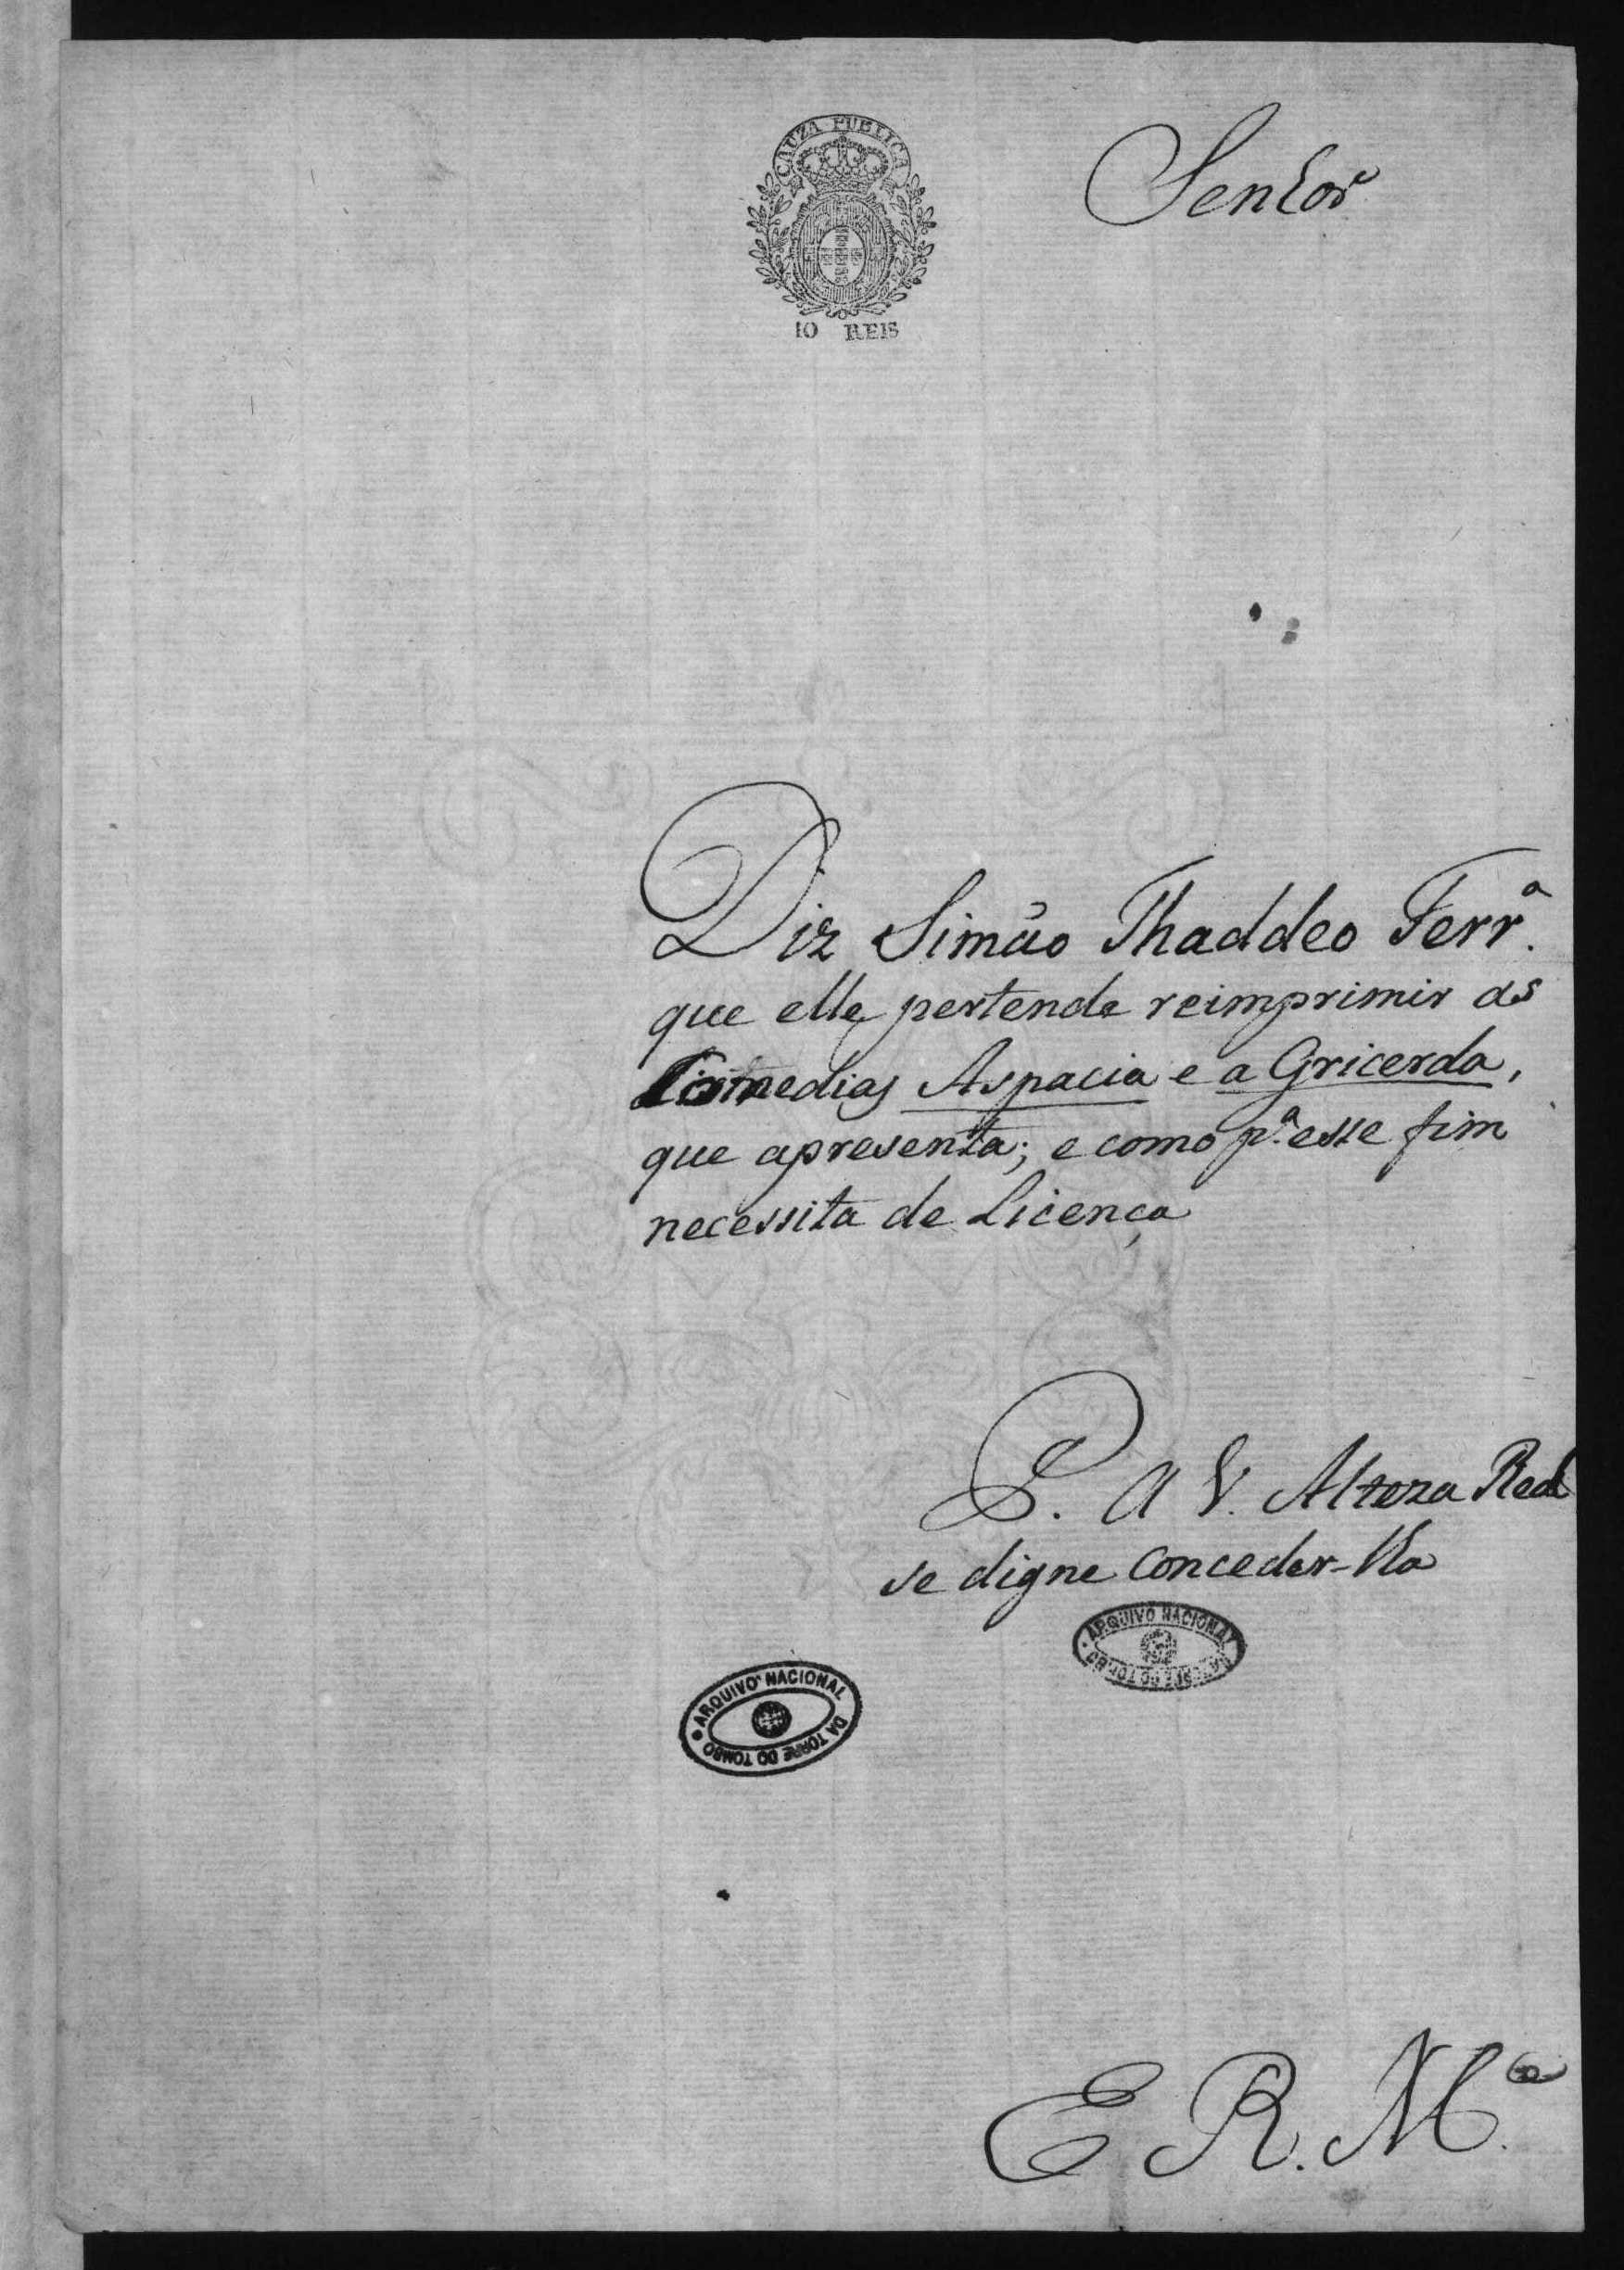 CAUZA PUBLICA
10 REIS
Senhor
Diz Simão Thaddeo Ferr.ª
que elle pertende reimprimir as
Comedias Aspacia e a Gricerda,
que apresenta; e como p.ª esse fim
necessita de Licença
P. A V. Alteza Real
se digne conceder-lha
ARQUIVO NACIONAL DA TORRE DO TOMBO
ARQUIVO NACIONAL DA TORRE DO TOMBO
E R. M.ce